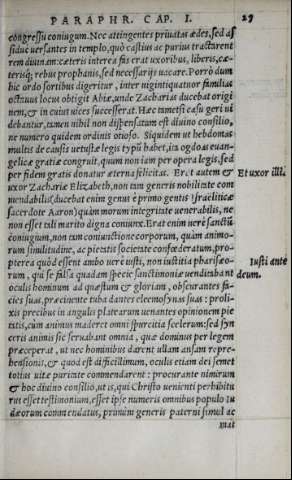 PARAPHR. CAP. I. 27
congressu coniugum. Nec attingentes priuatas ædes, sed as
sidue uersantes in templo, quò castius ac purius tractarent
rem diuinam: cæteris interea fas erat uxoribus, liberis, cæ-
terisq; rebus prophanis, sed necessarijs uacare. Porrò dum
hic ordo sortibus digeritur, inter uigintiquatuor familias
octauus locus obtigit Abiæ, unde Zacharias ducebat origi
nem, & in cuius uices successerat. Hæc tametsi casu geri ui
debantur, tamen nihil non dispensatum est diuino consilio,
ne numero quidem ordinis otioso. Siquidem ut hebdomas
multis de causis uetustæ legis typũ habet, ita ogdoas euan-
gelicæ gratiæ congruit, quum non iam per opera legis, sed
per fidem gratis donatur æterna felicitas. Erat autem &
Et uxor illi.
uxor Zachariæ Elizabeth, non tam generis nobilitate com
mendabilis (ducebat enim genus è primo gentis Israëliticæ
sacerdote Aaron) quàm morum integritate uenerabilis, ne
non esset tali marito digna coniunx. Erat enim uerè sanctũ
coniugium, non tam coniunctione corporum, quàm animo-
rum similitudine, ac pietatis societate confœderatum, pro-
pterea quòd essent ambo uerè iusti, non iustitia pharisæo-
Iusti ante
rum, qui se falsa quadam specie sanctimoniæ uenditabant
deum.
oculis hominum ad quæstum & gloriam, obscurantes fa-
cies suas, præcinente tuba dantes eleemosynas suas: proli-
xis precibus in angulis platearum uenantes opinionem pie
tatis, cùm animus maderet omni spurcitia scelerum: sed syn
ceris animis sic seruabant omnia, quæ dominus per legem
præceperat, ut nec hominibus darent ullam ansam repre-
hensionis, & quod est difficillimum, oculis etiam dei semet
totius uitæ puritate commendarent: procurante nimirum
& hoc diuino consilio, ut is, qui Christo uenienti perhibitu
rus esset testimonium, esset ipse numeris omnibus populo Iu
dæorum commendatus, primùm generis paterni simul ac
mat